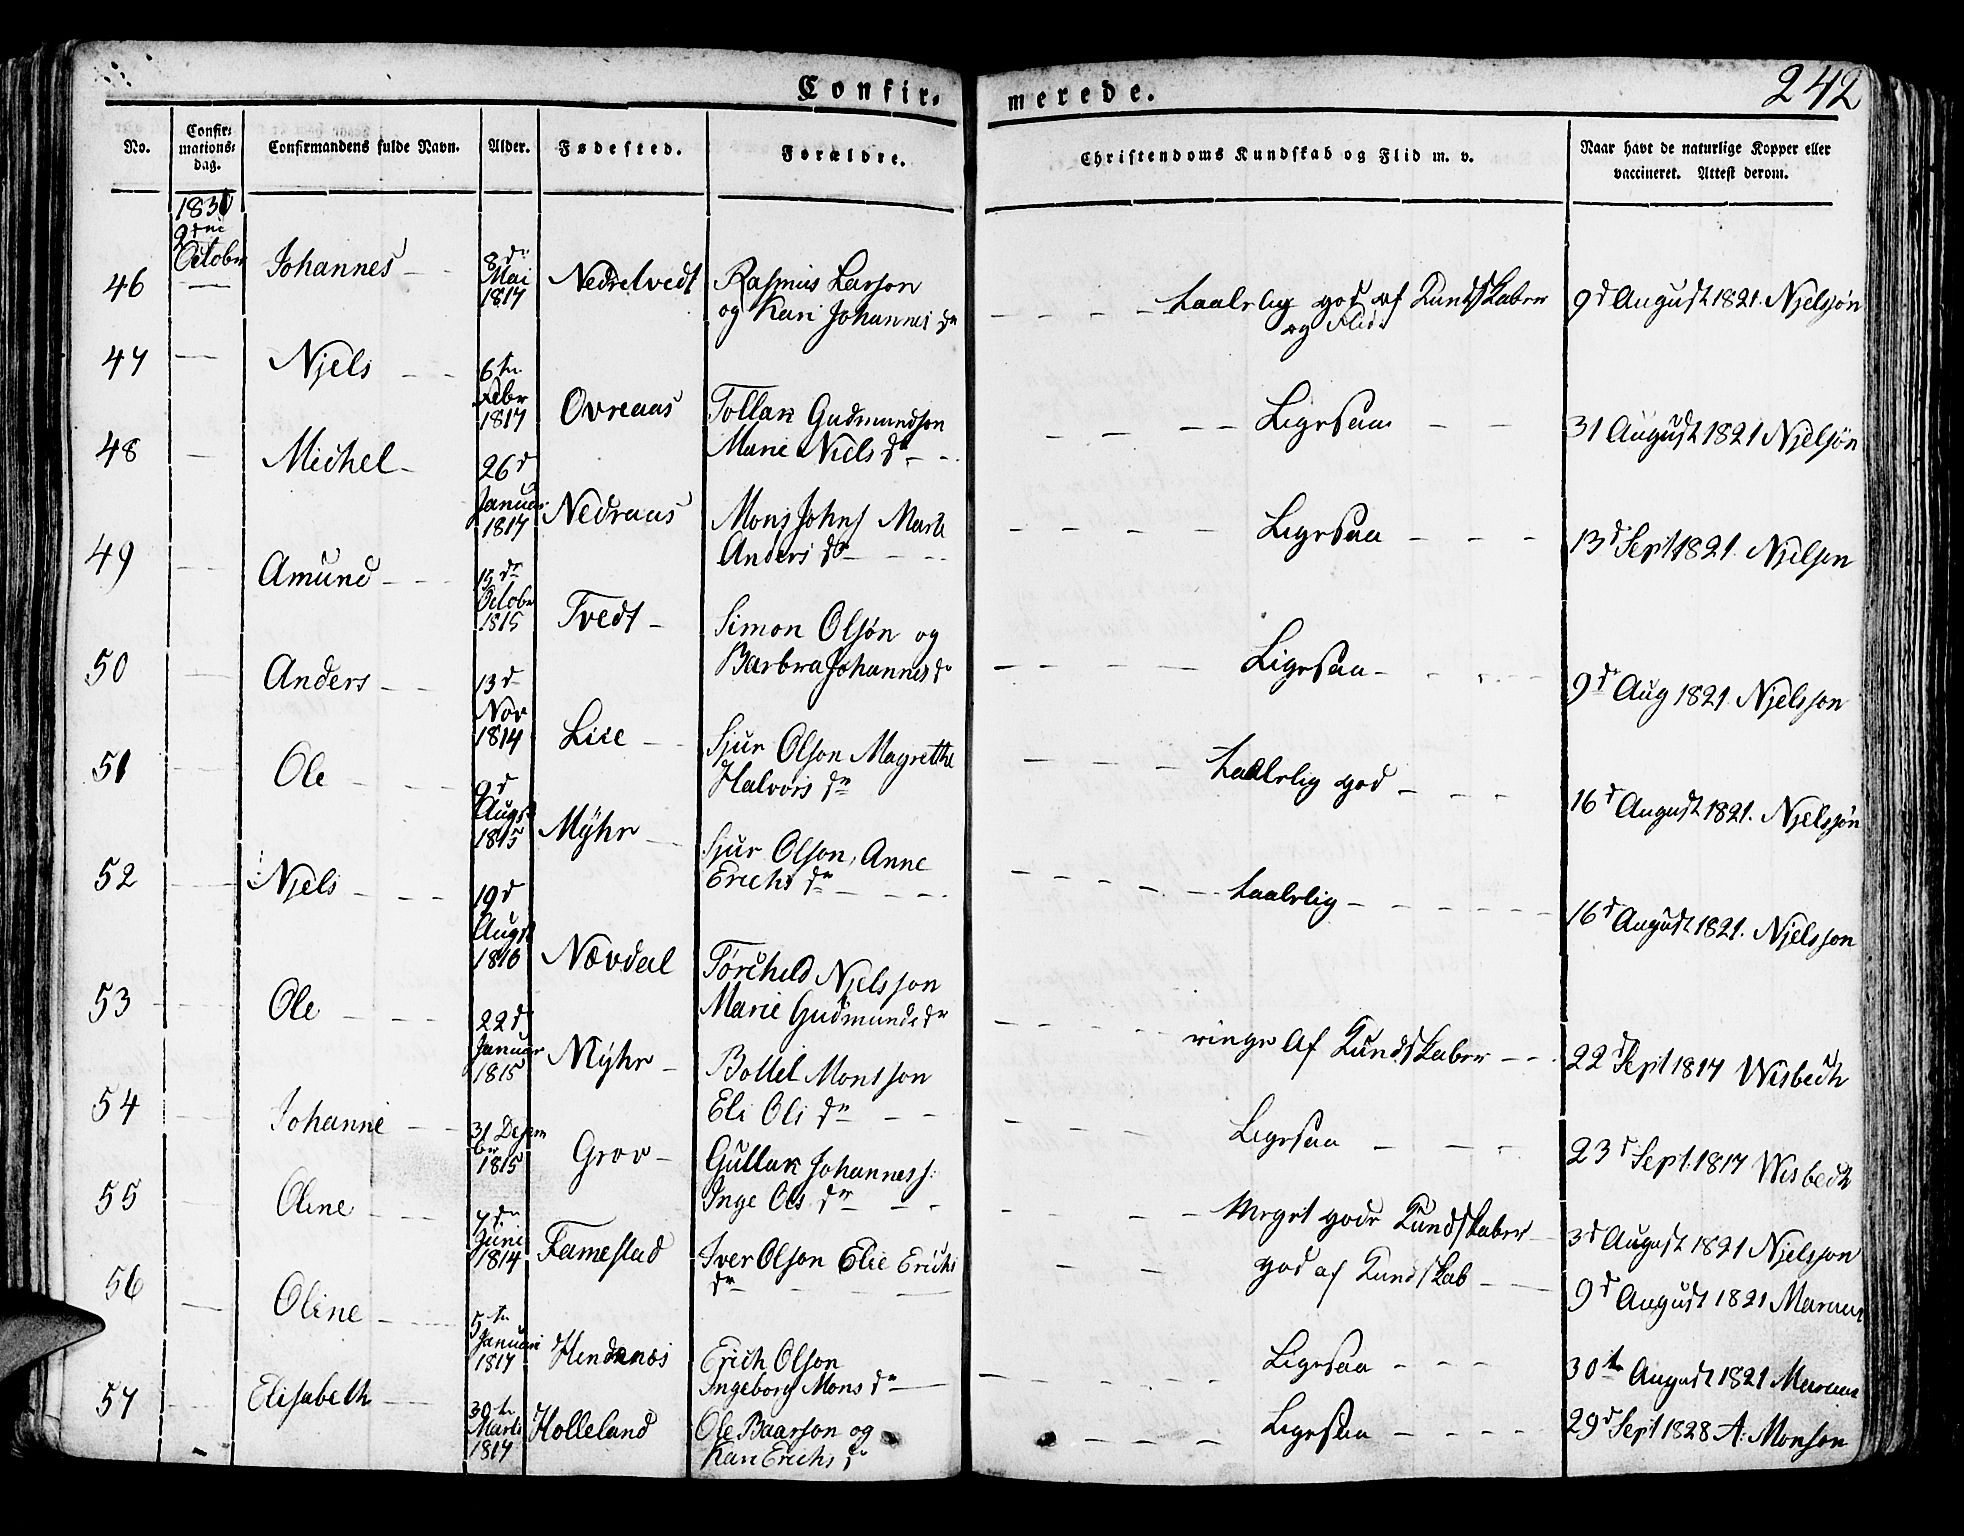 Confir-
merede.
242
No.
Confir-
mations-
dag.
Confirmandens fulde Navn.
Alder.
Fødested.
Forældre.
Christendoms Kundskab og Flid m. v.
Naar havt de naturlige Kopper eller
vaccineret. Attest derom.
1831
2den
October
46 Johannes 8de Mai 1817 Nedretvedt Rasmus Larson
og Kari Johannesdr taalelig god af Kundskaber
og Flid 9d August 1821. Njelsøn
47 Njels 6te Febr 1817 Ovreaas Tollak Gudmundson
Marie Nielsdr Ligesaa 31 August 1821 Njelsøn
48 Michel 26d Januar 1817 Nedraas Mons Johns Marte
Andersdr Ligesaa 13d Sept 1821. Njelson
49 Amund 15de October 1815 Tvedt Simon Olsøn og
Barbra Johannesdr Ligesaa 9d Aug 1821 Njelsson
50 Anders 13d Nov 1814 Liie Sjur Olson Magrethe
Halvorsdr taalelig god 16d August 1821. Njelssøn
51 Ole 9d Augst 1815 Mÿhr Sjur Olson, Anne
Erichsdr taalelig 16d August 1821. Njelsson
52 Njels 19d Augst 1816 Nævdal Torchild Njelsson
Marie Gudmundsdr ringe af Kundskaber 22d Sept 1817 Wisbech
53 Ole 22d Januar 1815 Mÿhr Bottel Monsson
Eli Olsdr Ligesaa 23d Sept. 1817 Wisbech
54 Johanne 31 Desem
ber 1815 Grov Gullak Johanness:
Inge Olsdr Meget gode Kundskaber 3d August 1821 Njelsson
55 Oline 7de Juni 1814 Famestad Iver Olson Elie Erichs
dr god af Kundskab 9d August 1821 Maraas
56 Oline 5te Januari 1817 Hendenes Erich Olson
Ingeborg Monsdr Ligesaa 30te August 1821 Maraas
57 Elisabeth 30te Marti 1817 Holleland Ole Baarson og
Kari Erichsdr Ligesaa 29d Sept 1828 A: Monson